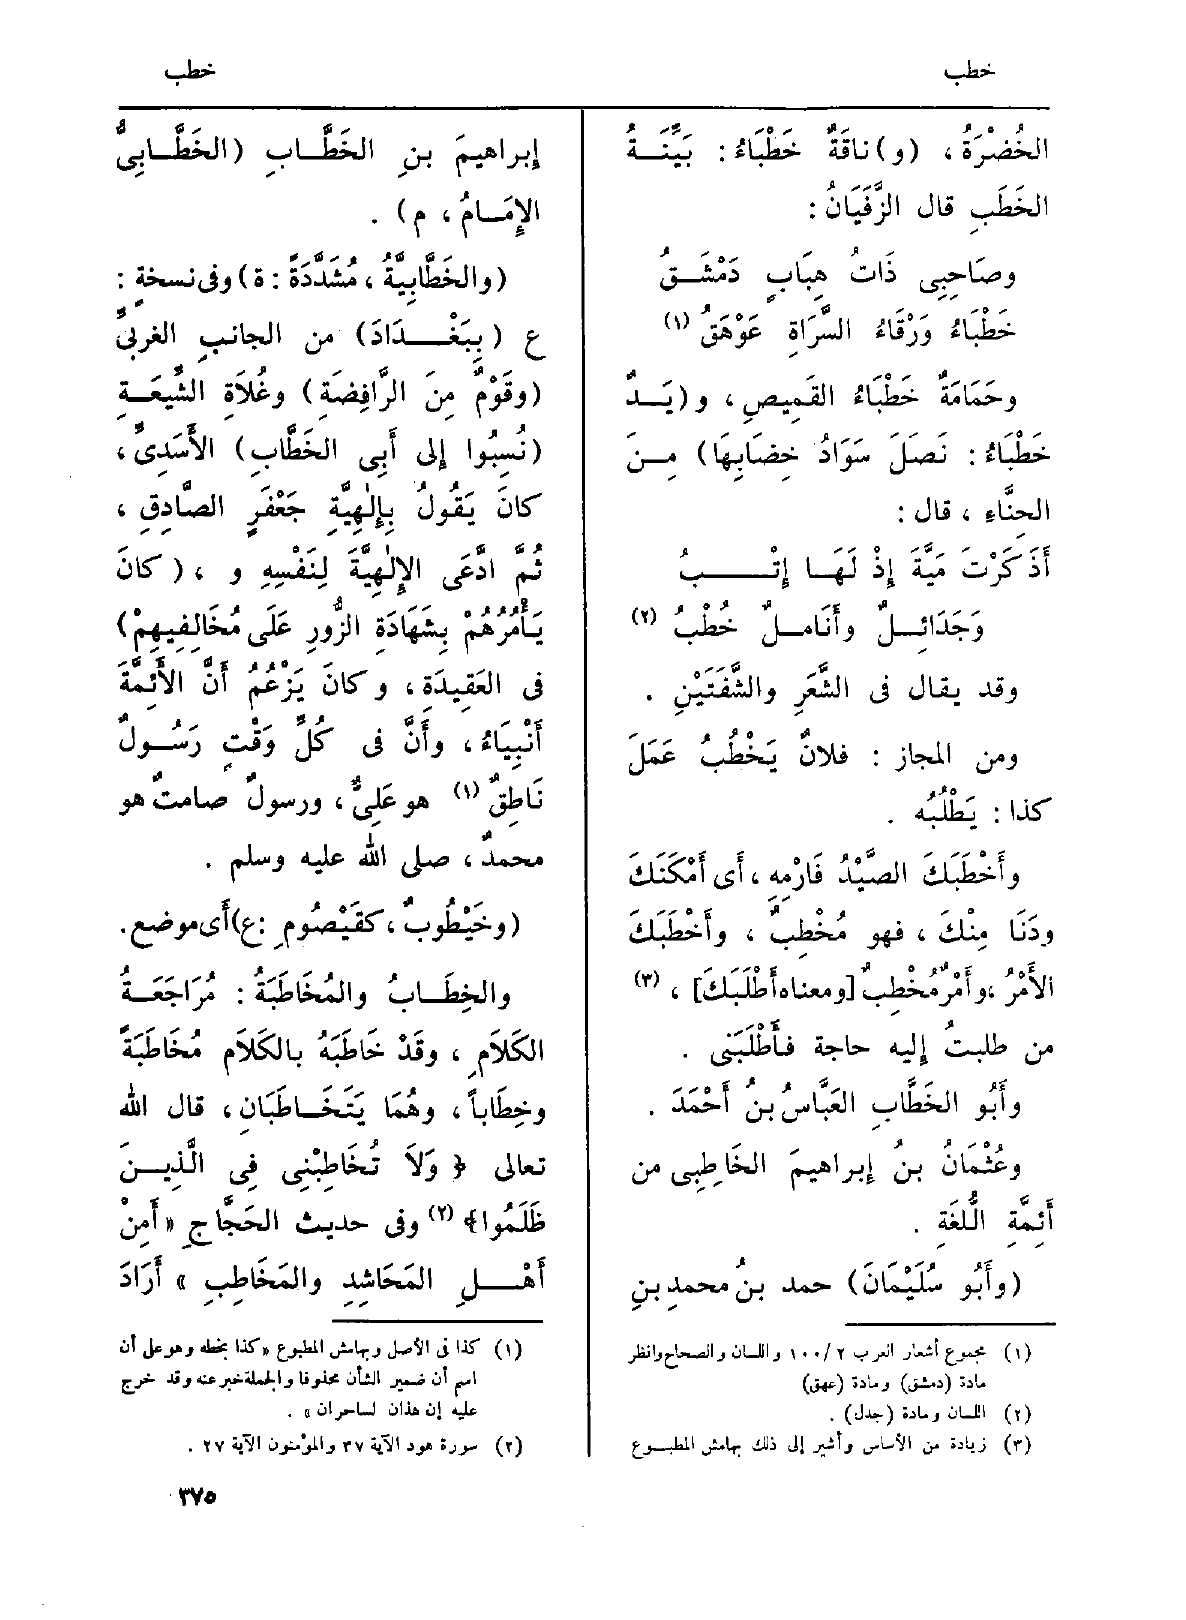 خطب
خطب
الخُضْرَةُ ، (و) ناقَةٌ خَطْبَاءُ : بَيِّنَةُ
الخَطَبِ قال الزَّفَيَانُ :
وصَاحِبِى ذَاتُ هِبَابٍ دَمْشَقُ
خَطْبَاءُ وَرْقَاءُ السَّرَاةِ عَوْهَقُ (١)
وحَمَامَةٌ خَطْبَاءُ القَمِيصِ ، و (يَدٌ
خَطْبَاءُ : نَصَلَ سَوَادُ خِضَابِهَا) مِنَ
الحِنَّاءِ ، قال :
أَذَكَرْتَ مَيَّةَ إِذْ لَهَا إِتْبُ
وَجَدَائِلٌ وأَنَامِلٌ خُطْبُ (٢)
وقد يقال فى الشَّعَرِ والشَّفَتَيْنِ .
ومن المجاز : فلانٌ يَخْطُبُ عَمَلَ
كذا : يَطْلُبُه .
وأَخْطَبَكَ الصَّيْدُ فَارْمِهِ ، أَى أَمْكَنَكَ
ودَنَا مِنْكَ ، فهو مُخْطِبٌ ، وأَخْطَبَكَ
الأَمْرُ ، وأَمْرٌ مُخْطِبٌ [ومعناه أَطْلَبَكَ] ، (٣)
من طلبتُ إليه حاجة فأَطْلَبَنى .
وأَبُو الخَطَّابِ العَبَّاسُ بنُ أَحْمَدَ .
وعُثْمَانُ بنُ إبراهيمَ الخَاطِبِى من
أَئِمَّةِ اللُّغَةِ .
(وأَبُو سُلَيْمَانَ) حمد بنُ محمدِ بنِ
(١) مجموع أشعار العرب ١٠٠/٢ واللسان والصحاح وانظر
مادة (دمشق) ومادة (عهق)
(٢) اللسان ومادة (جدل) .
(٣) زيادة من الأساس وأشير إلى ذلك بهامش المطبوع
إبراهيمَ بنِ الخَطَّابِ (الخَطَّابِىُّ
الإِمَامُ ، م) .
(والخَطَّابِيَّةُ ، مُشَدَّدَةً : ة) وفى نسخةٍ :
ع (بِبَغْدَادَ) من الجانبِ الغربىِّ
(وقَوْمٌ مِنَ الرَّافِضَةِ) وغُلَاةِ الشِّيعَةِ
(نُسِبُوا إلى أَبِى الخَطَّابِ) الأَسَدِىِّ ،
كانَ يَقُولُ بِإِلٰهِيَّةِ جَعْفَرٍ الصَّادِقِ ،
ثُمَّ ادَّعَى الإِلٰهِيَّةَ لِنَفْسِهِ و ، (كانَ
يَأْمُرُهُمْ بِشَهَادَةِ الزُّورِ عَلَى مُخَالِفِيهِمْ)
فى العَقِيدَةِ ، وكانَ يَزْعُمُ أَنَّ الأَئِمَّةَ
أَنْبِيَاءُ ، وأَنَّ فى كُلِّ وَقْتٍ رَسُولٌ
نَاطِقٌ (١) هو عَلِىٌّ ، ورسولٌ صامتٌ هو
محمدٌ ، صلى الله عليه وسلم .
(وخَيْطُوبٌ ، كقَيْصُومٍ : ع) أَى موضع .
والخِطَابُ والمُخَاطَبَةُ : مُرَاجَعَةُ
الكَلَامِ ، وقَدْ خَاطَبَهُ بالكَلَامِ مُخَاطَبَةً
وخِطَاباً ، وهُمَا يَتَخَاطَبَانِ ، قال الله
تعالى ﴿ وَلَا تُخَاطِبْنِى فِى الَّذِينَ
ظَلَمُوا﴾ (٢) وفى حديث الحَجَّاجِ «أَمِنْ
أَهْلِ المَحَاشِدِ والمَخَاطِبِ » أَرَادَ
(١) كذا فى الأصل وبهامش المطبوع «كذا بخطه وهو على أن
اسم أن ضمير الشأن محذوفا والجملة خبر عنه وقد خرج
عليه إن هذان لساحران » .
(٢) سورة هود الآية ٣٧ والمؤمنون الآية ٢٧ .
٣٧٥